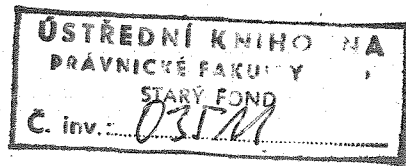 ÚSTŘEDNÍ KNIHO NA
PRÁVNICKÉ FAKU Y
STARÝ FOND
Č. inv.: